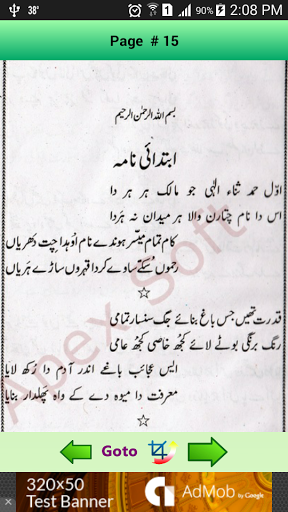 38°
2:08 PM
Page # 15
بسم اللہ الرحمٰن الرحیم
ابتدائی نامہ
اوّل حمد ثناء الٰہی جو مالک ہر ہر دا
اس دا نام چتارن والا ہر میدان نہ ہَردا
کام تمام میسّر ہوندے نام اوہدا چت دھریاں
رحموں سُکّے ساوے کردا قہروں ساڑے ہریاں
☆
قدرت تھیں جس باغ بنائے جگ سنسار تمامی
رنگ برنگی بوٹے لائے کُجھ خاصی کُجھ عامی
☆
ایس عجائب باغے اندر آدم دا رُکھ لایا
معرفت دا میوہ دے کے واہ پھلدار بنایا
Apex Soft
Goto
320x50
Test Banner
AdMob by Google